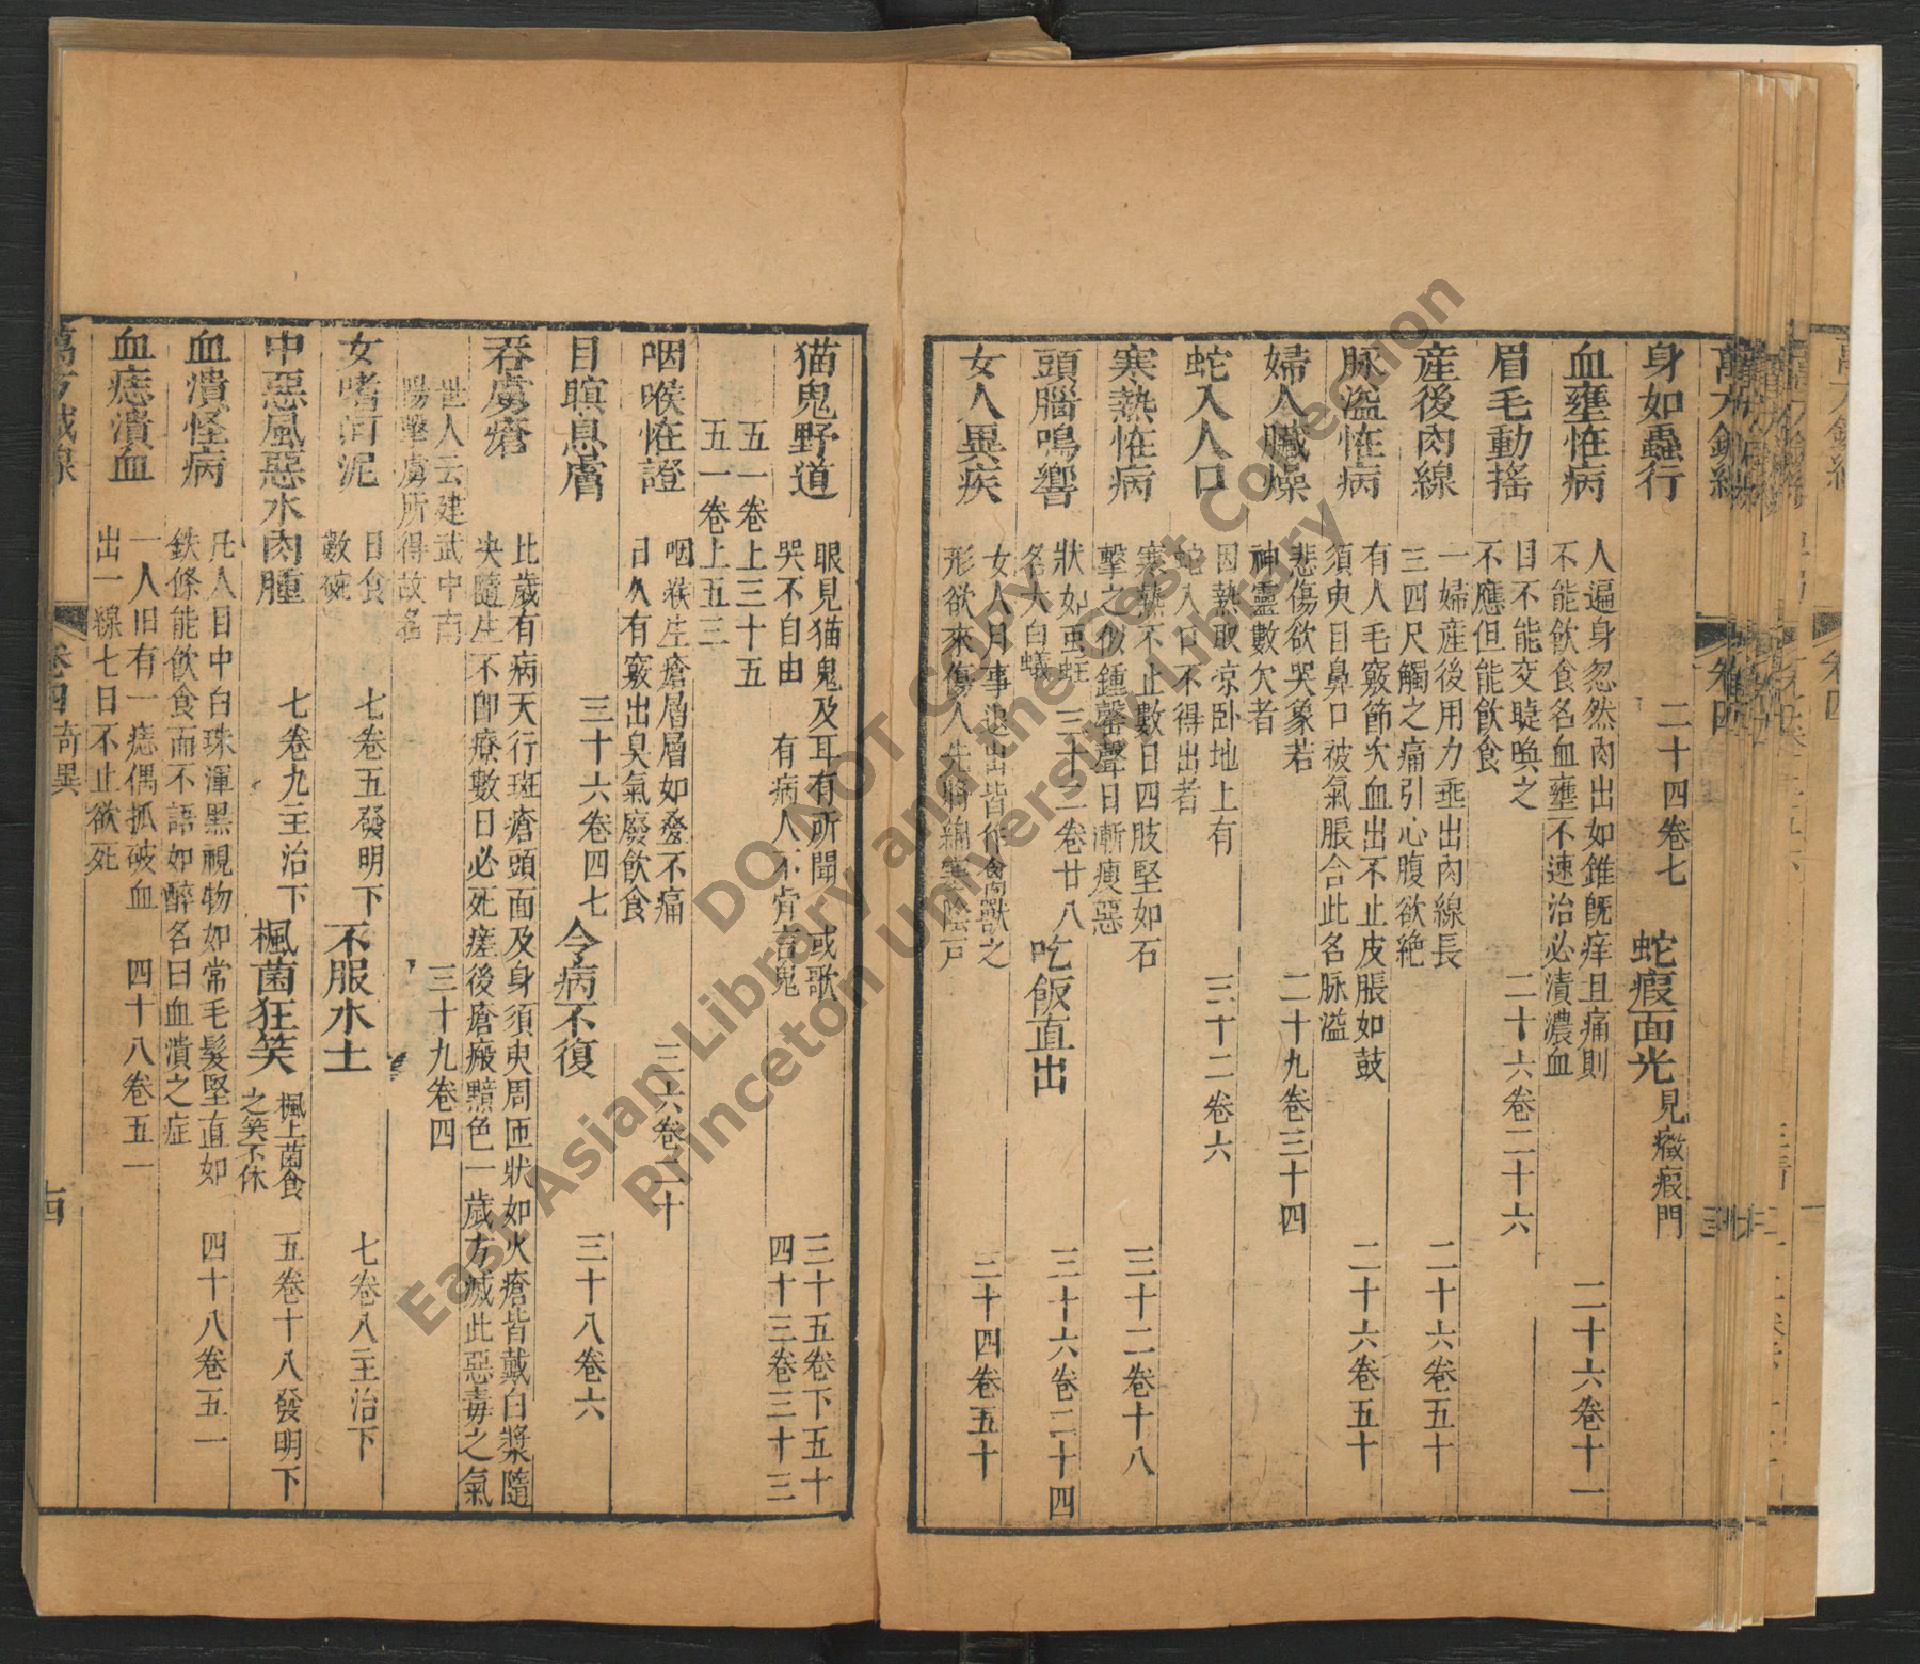 身如蟲行
二十四卷七
蛇瘕面光見癥瘕門
血壅恠病
人遍身忽然肉出如錐旣痒且痛則
不能飲食名血壅不速治必潰濃血
二十六卷十一
眉毛動搖
目不能交睫喚之
不應但能飲食
二十六卷二十六
産後肉線
一婦産後用力垂出肉線長
三四尺觸之痛引心腹欲絶
二十六卷五十
脉溢恠病
有人毛竅節次血出不止皮脹如鼓
須臾目鼻口被氣脹合此名脉溢
二十六卷五十
婦人臟燥
悲傷欲哭象若
神靈數欠者
二十九卷三十四
蛇入人口
因熱取凉卧地上有
蛇入口不得出者
三十二卷六
寒熱恠病
寒熱不止數日四肢堅如石
擊之似鍾磬聲日漸瘦惡
三十二卷十八
頭腦鳴響
狀如虫蛀
名大白蟻
三十二卷廿八
吃飯直出
三十六卷二十四
女人異疾
女人月事退出皆作禽獸之
形欲來傷人先將綿塞陰戸
二十四卷五十
猫鬼野道
眼見猫鬼及耳有所聞或歌
哭不自由
有病人不肯言鬼
三十五卷下五十
四十三卷三十三
五一卷上三十五
五一卷上五三
咽喉恠證
咽喉生瘡層層如疊不痛
日久有竅出臭氣廢飲食
三六卷二十
目瞑息膚
三十六卷四七
令病不復
三十八卷六
吞虜瘡
比歲有病天行斑瘡頭面及身須臾周匝狀如火瘡皆戴白漿隨
決隨生不卽療數日必死瘥後瘡瘢黯色一歲方滅此惡毒之氣
世人云建武中南
陽擊虜所得故名
三十九卷四
女嗜河泥
日食
數碗
七卷五發明下
不服水土
七卷八主治下
中惡風惡水肉腫
七卷九主治下
楓菌狂笑
楓上菌食
之笑不休
五卷十八發明下
血潰怪病
凡人目中白珠渾黑視物如常毛髮堅直如
鉄條能飲食而不語如醉名曰血潰之症
四十八卷五一
血痣潰血
一人旧有一痣偶抓破血
出一線七日不止欲死
四十八卷五一
萬方鍼線
卷四奇異
East Asian Library and the Gest Collection
Princeton University Library
DO NOT Copy